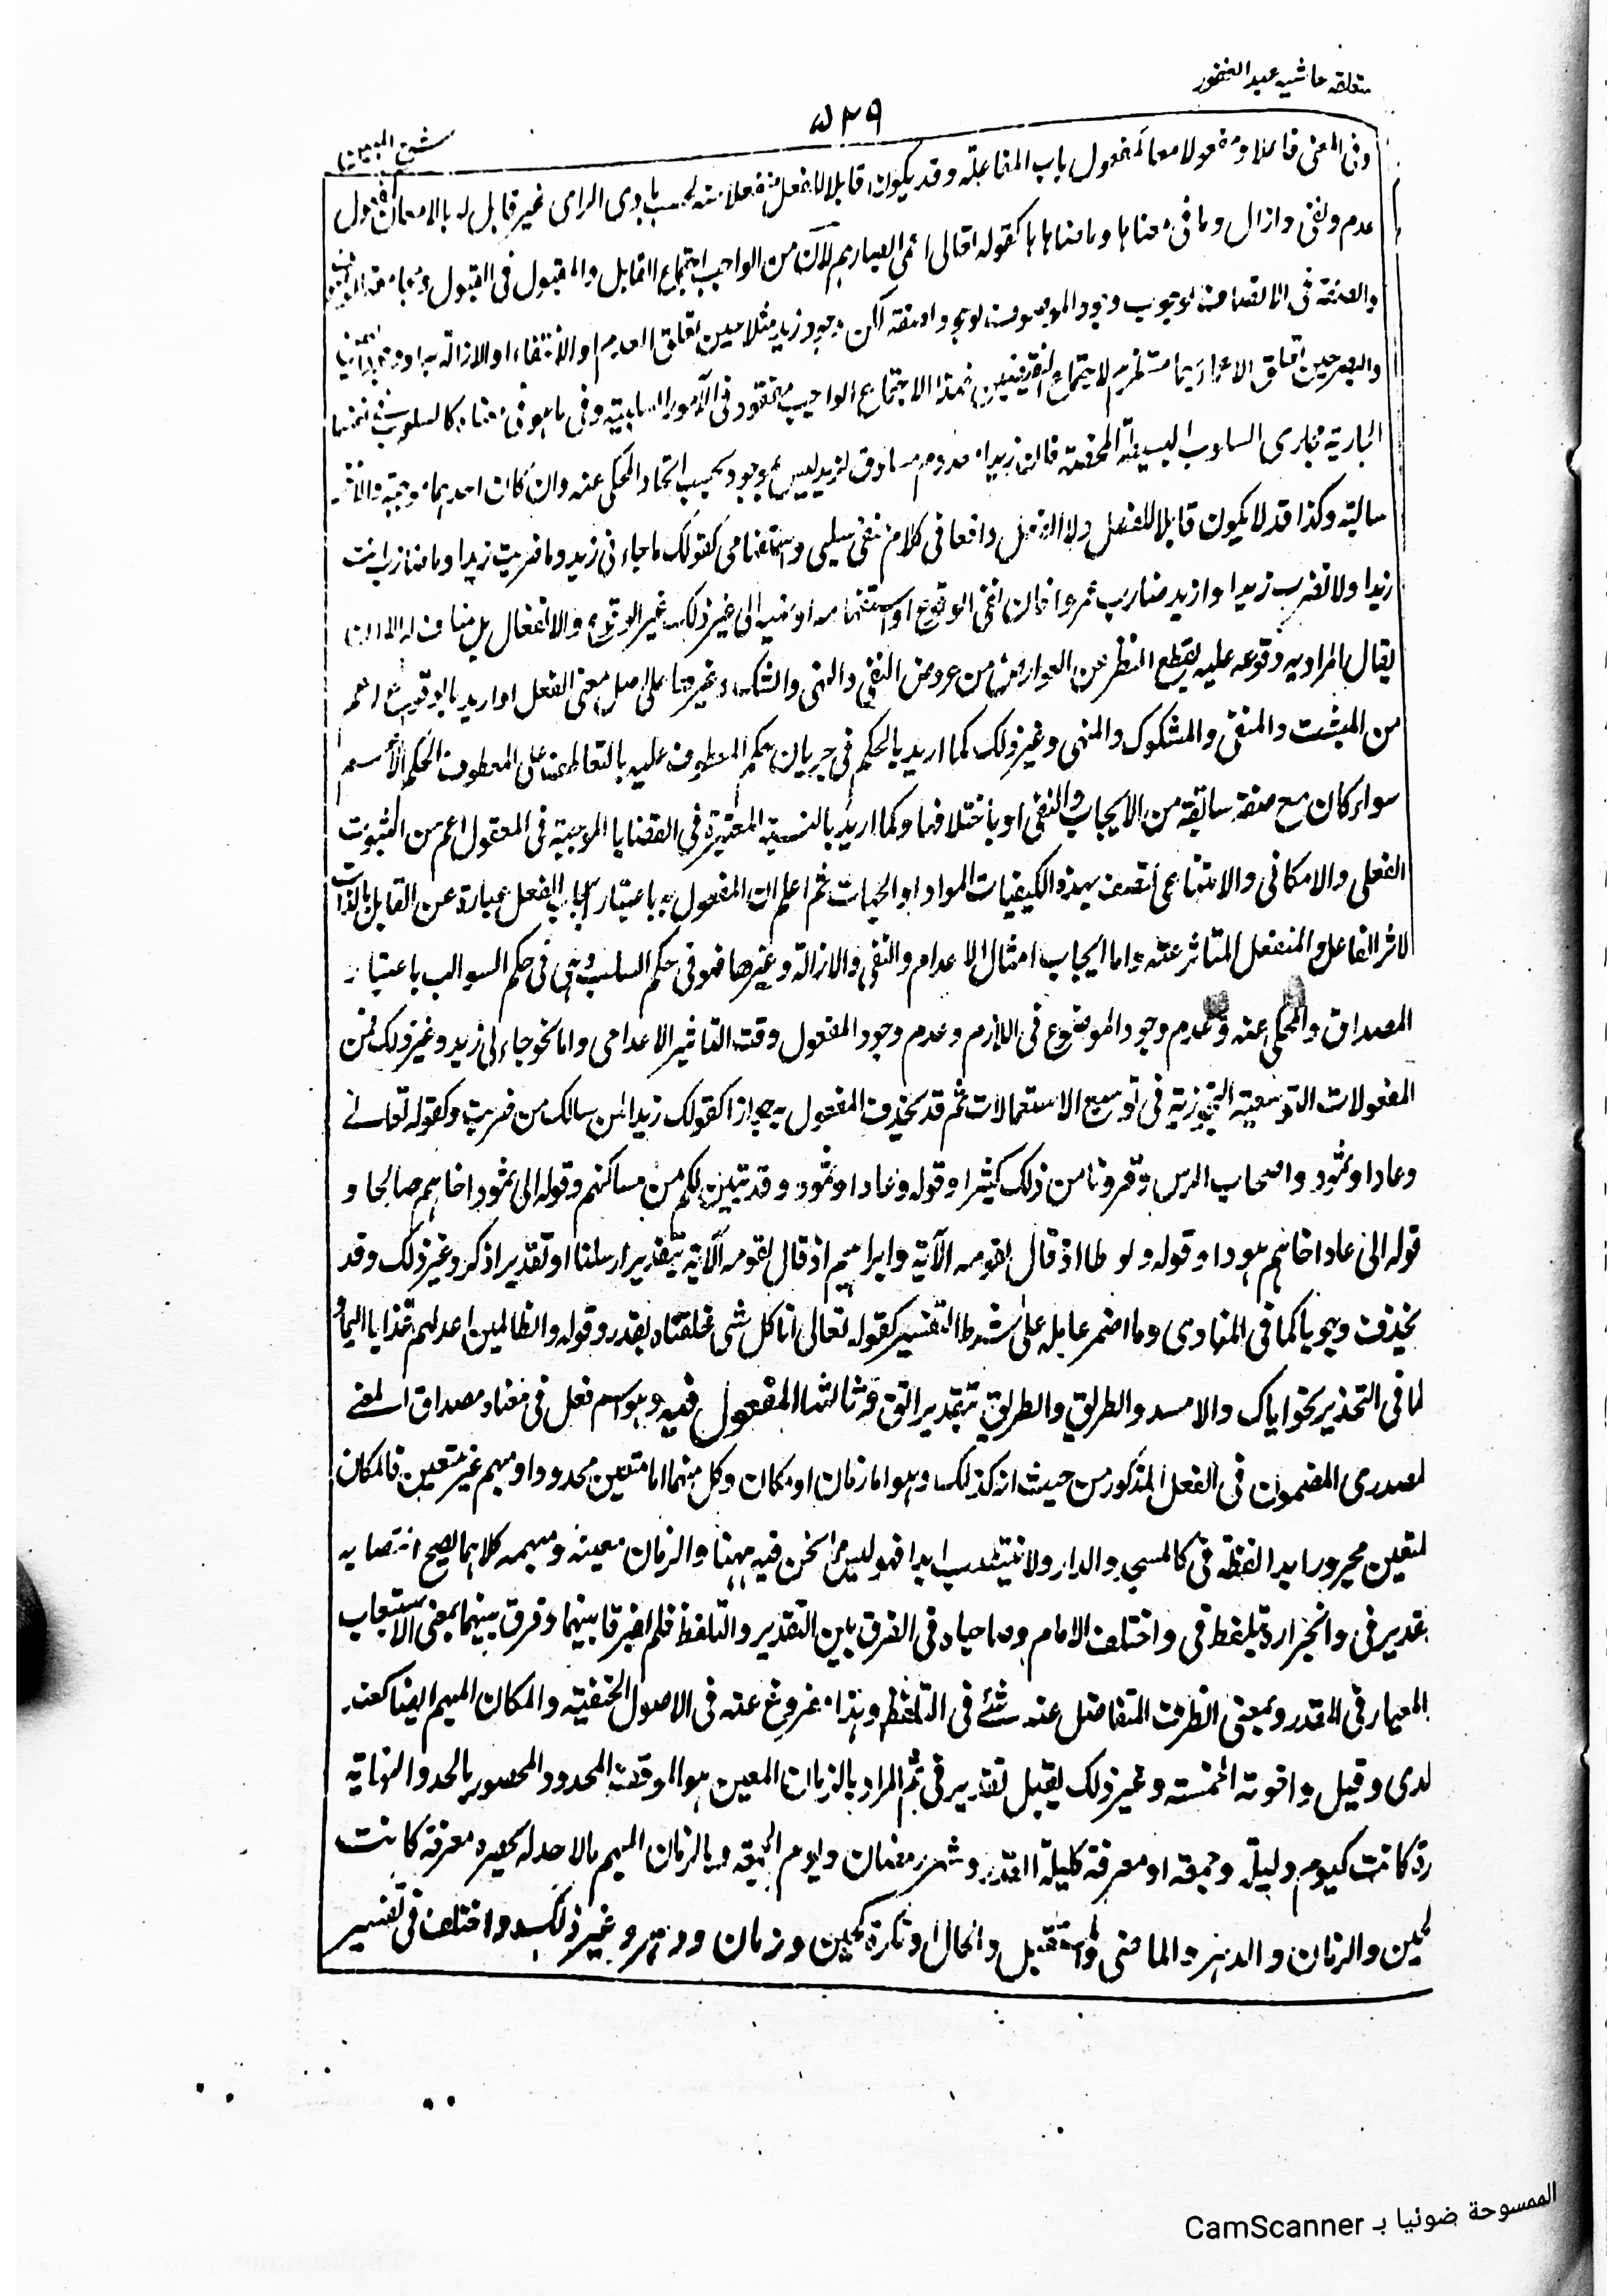 متعلقه حاشیه عبدالغفور
۵۲۹
وفی المعنی فاعلا ومفعولا معا کمفعول باب المفاعلة وقد یکون قابلا للفعل منفعلا منه بحسب بادی الرای غیر قابل له بالامعان
عدم ونفی وازال وما فی معناها وما ضاهاها کقوله تعالی اعمی ابصارهم لان من الواجب اجتماع القابل والمقبول فی القبول
والصفة فی الاتصاف لوجوب وجود الموصوف لوجود الصفة لکن وجود زید مثلا حین تعلق العدم او الانتفاء او الازالة به
والبصر حین تعلق الاعماء بهما مستلزم لاجتماع النقیضین فهذا الاجتماع الواجب مفقود فی الامور السابقة وفی ما هو فی معناه کالسلوب
الجاریة مجاری السلوب البسیطة المحضة فان زیدا معدوم مساوق لزید لیس بموجود بحسب اتحاد المحکی عنه وان کان احدهما موجبة والاخر
سالبة وکذا قد لا یکون قابلا للفعل ولا الفعل واقعا فی کلام نفی سلبی واستفهامی کقولک ما جاءنی زید وما ضربت زیدا وما ضارب انت
زیدا ولا تضرب زیدا وازید ضارب عمروا فان نفی الوقوع او استفهامه او نهیه الی غیر ذلک غیر الوقوع والانفعال بل مناف له الا ان
یقال المراد به وقوعه علیه بقطع النظر عن العوارض من عروض النفی والنهی والشک وغیرها علی اصل معنی الفعل او ارید بالوقوع اعم
من المثبت والمنفی والمشکوک والمنهی وغیر ذلک کما ارید بالحکم فی جریان حکم المعطوف علیه بالتعاطف علی المعطوف الحکم الاعم
سواء کان مع صفة سابقة من الایجاب والنفی او باختلافها وکما ارید بالنسبة المعتبرة فی القضایا الموجبة فی المعقول اعم من الثبوت
الفعلی والامکانی والامتناعی تصدف بهذه الکیفیات المواد او الجهات ثم اعلم ان المفعول به باعتبار ایجاب الفعل عبارة عن القابل بالذات
لاثر الفاعل والمنفعل المتاثر عنه واما ایجاب امثال الاعدام والنفی والازالة وغیرها فهو فی حکم السلب وهی فی حکم السوالب باعتبار
المصداق والمحکی عنه وعدم وجود الموضوع فی اللازم وعدم وجود المفعول وقت التاثیر الاعدامی واما نحو جاء لی زید وغیر ذلک فمن
المفعولات التوسعیة التجوزیة فی توسیع الاستعمالات ثم قد یحذف المفعول به جوازا کقولک زیدا لمن سالک من ضربت وکقوله تعالی
وعادا وثمود واصحاب الرس وقرونا من ذلک کثیرا وقوله وعادا وثمود وقد تبین لکم من مساکنهم وقوله الی ثمود اخاهم صالحا و
قوله الی عاد اخاهم هودا وقوله ولوطا اذ قال لقومه الآیة وابراهیم اذ قال لقومه الآیة بتقدیر ارسلنا او تقدیر اذکر وغیر ذلک وقد
یحذف وجوبا کما فی المنادی وما اضمر عامله علی شرط التفسیر کقوله تعالی انا کل شی خلقناه بقدر وقوله والظالمین اعد لهم عذابا الیما
کما فی التحذیر نحو ایاک والاسد والطریق والطریق بتقدیر اتق ثالثها المفعول فیه وهو اسم فعل فی معناه مصداق المعنی
لمصدری المضمون فی الفعل المذکور من حیث انه کذلک وهو اما زمان او مکان وکل منهما اما متعین محدود او مبهم غیر متعین فالمکان
لمتعین مجرور ابدا لفظة فی کالمسجد والدار ولا ینتصب ابدا فهو لیس مما نحن فیه ههنا والزمان معینه ومبهمه کلاهما یصح انتصابه
بتقدیر فی وانجراره بلفظ فی واختلف الامام وصاحباه فی الفرق بین التقدیر والتلفظ فلم یفرقا بینهما وفرق بینهما بمعنی الاستیعاب
المعیار فی المقدر وبمعنی الظرف المتفاضل عنه شئ فی التلفظ وهذا مفروغ عنه فی الاصول الحنفیة والمکان المبهم ایضا کعند
لدی وقبل واخوته الخمسة وغیر ذلک یقبل تقدیر فی ثم المراد بالزمان المعین هو الوقت المحدود المحصور بالحد والنهایة
رة کانت کیوم ولیلة وجمعة او معرفة کلیلة القدر وشهر رمضان ویوم الجمعة وبالزمان المبهم ما لا حد له یحصره معرفة کانت
لحین والزمان والدهر والماضی والمستقبل والحال او نکرة کحین وزمان ودهر وغیر ذلک واختلف فی تفسیر
الممسوحة ضوئيا بـ CamScanner